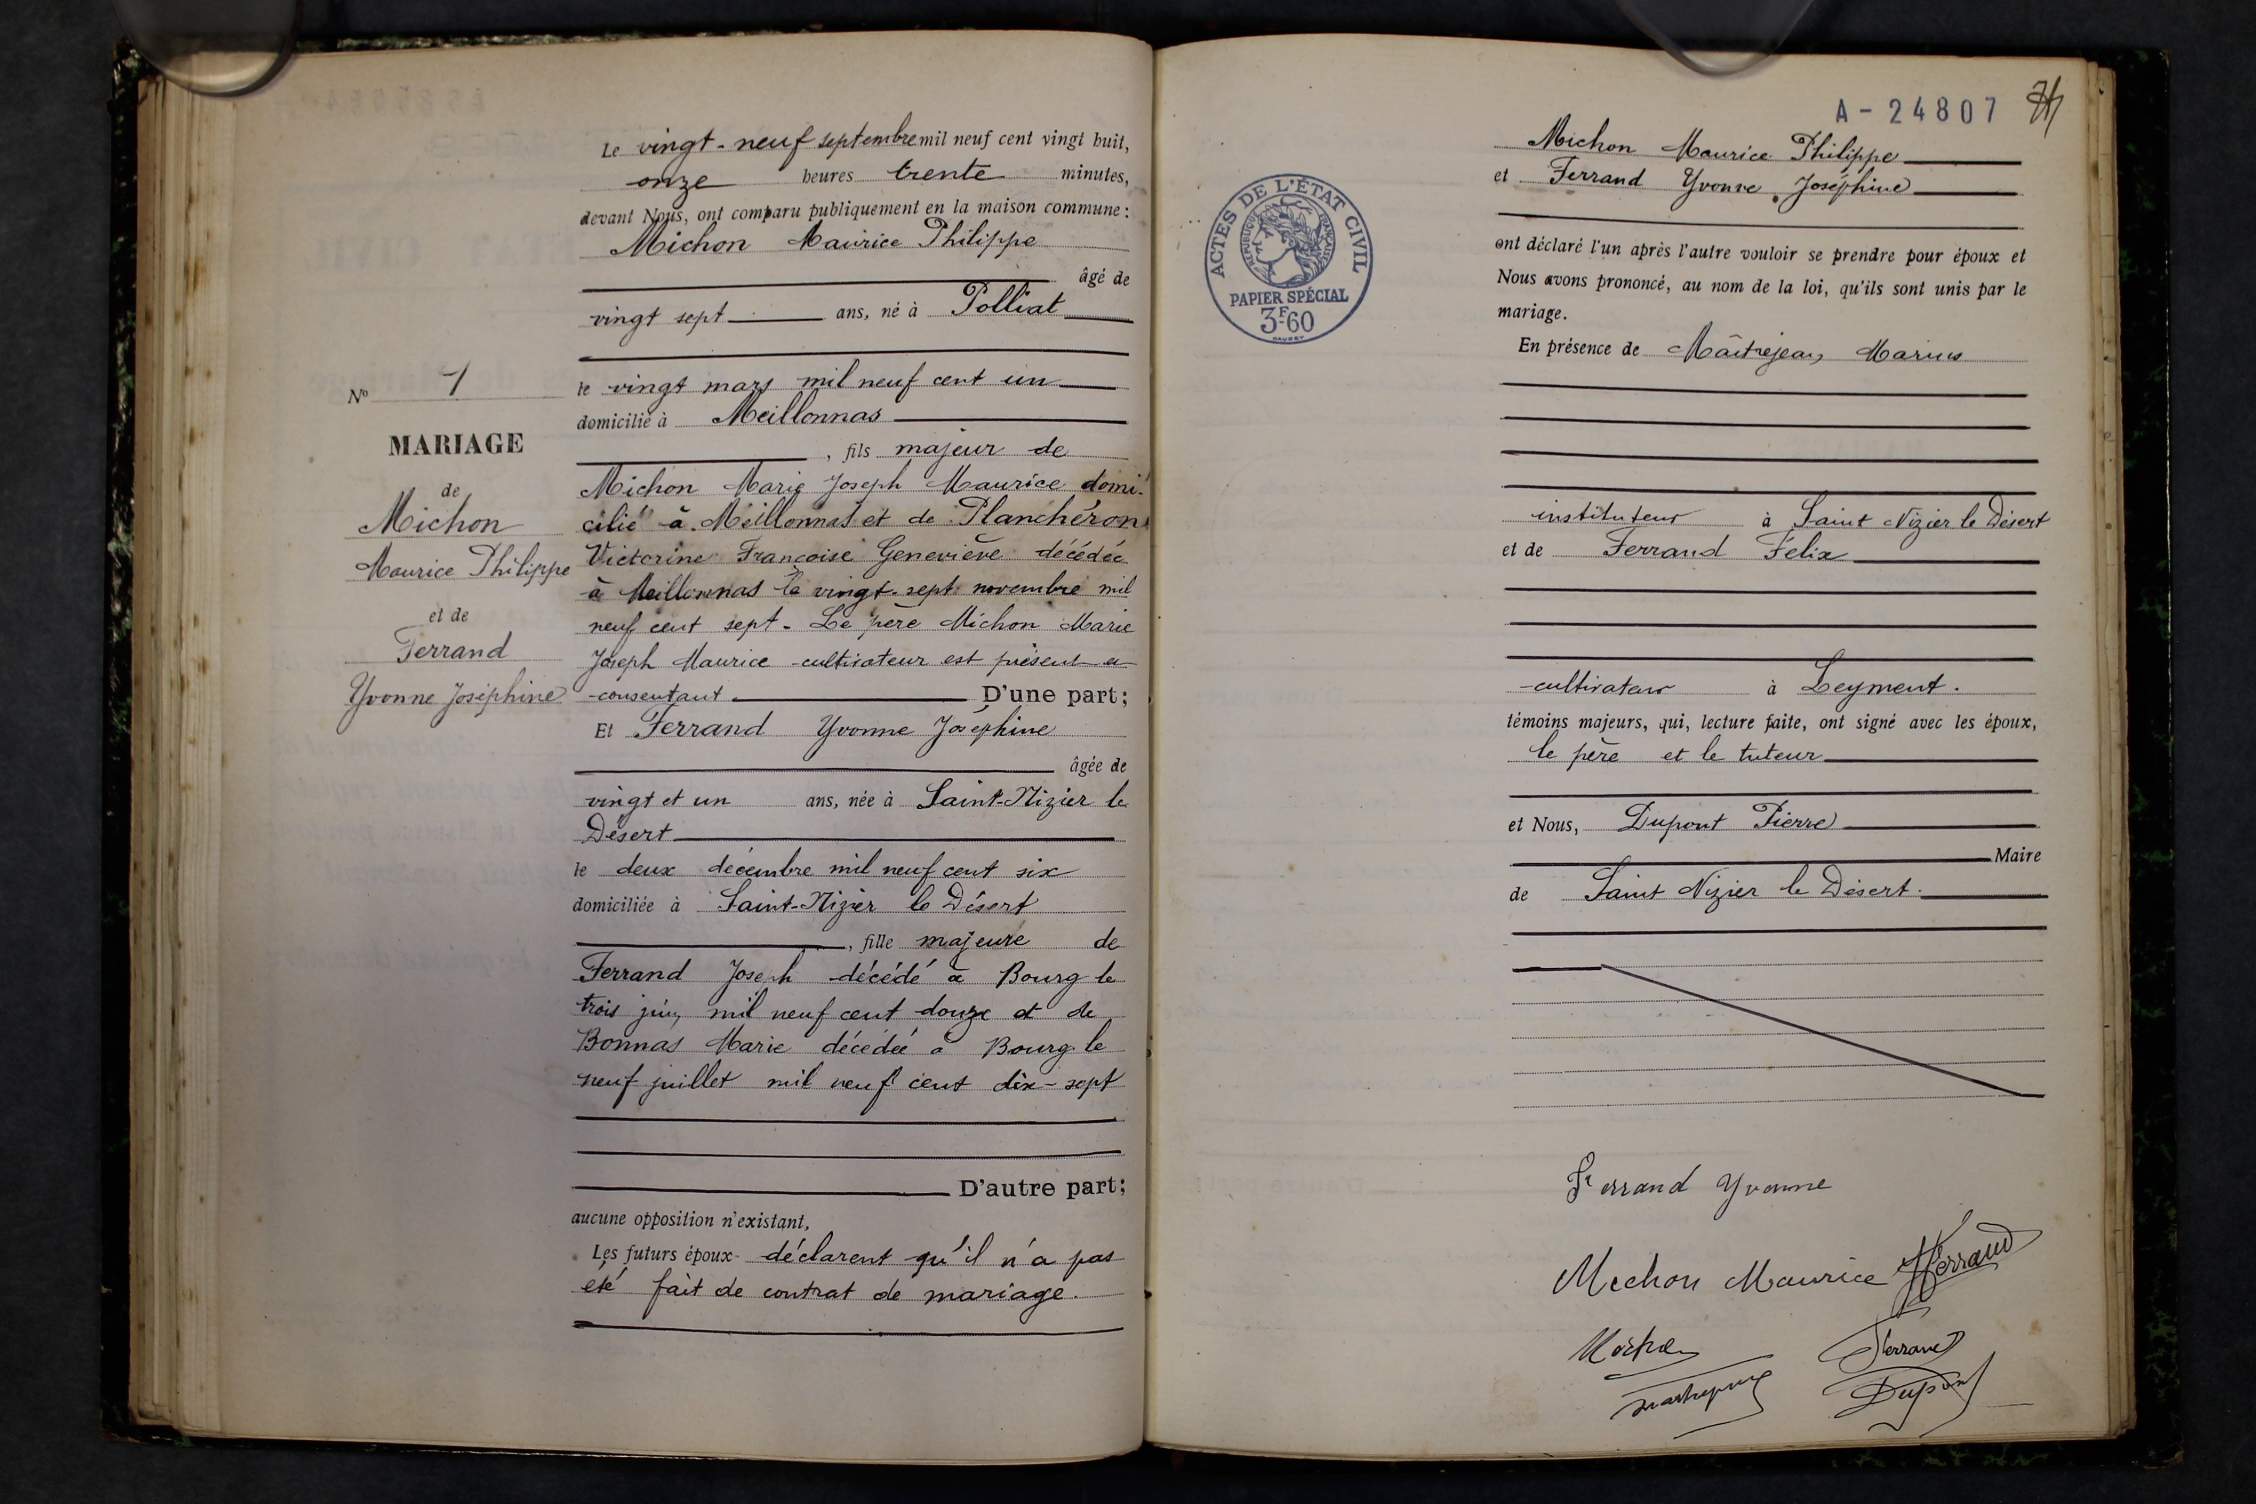 Le vingt-neuf septembre mil neuf cent vingt huit,
onze heures trente minutes,
devant Nous, ont comparu publiquement en la maison commune :
Michon Maurice Philippe
âgé de
vingt sept ans, né à Polliat
le vingt mars mil neuf cent un
domicilié à Meillonnas
, fils majeur de
Michon Marie Joseph Maurice domi-
cilié à Meillonnas et de Planchéron
Victorine Françoise Geneviève décédée
à Meillonnas le vingt-sept novembre mil
neuf cent sept. Le père Michon Marie
Joseph Maurice cultivateur est présent et
consentant D'une part;
Et Ferrand Yvonne Joséphine
âgée de
vingt et un ans, née à Saint-Nizier le
Désert
le deux décembre mil neuf cent six
domiciliée à Saint-Nizier le Désert
, fille majeure de
Ferrand Joseph décédé à Bourg le
trois juin mil neuf cent douze et de
Bonnas Marie décédée à Bourg le
neuf juillet mil neuf cent dix-sept
D'autre part;
aucune opposition n'existant,
Les futurs époux déclarent qu'il n'a pas
été fait de contrat de mariage.
No 7
MARIAGE
de
Michon
Maurice Philippe
et de
Ferrand
Yvonne Joséphine
ACTES DE L'ÉTAT CIVIL
RÉPUBLIQUE FRANÇAISE
PAPIER SPÉCIAL
3F60
A-24807
Michon Maurice Philippe
et Ferrand Yvonne Joséphine
ont déclaré l'un après l'autre vouloir se prendre pour époux et
Nous avons prononcé, au nom de la loi, qu'ils sont unis par le
mariage.
En présence de Maîtrejean Marius
instituteur à Saint Nizier le Désert
et de Ferrand Félix
cultivateur à Leyment.
témoins majeurs, qui, lecture faite, ont signé avec les époux,
le père et le tuteur
et Nous, Dupont Pierre
Maire
de Saint Nizier le Désert.
Ferrand Yvonne
Michon Maurice Ferrand
Michon Ferrand
Maitrejean Dupont